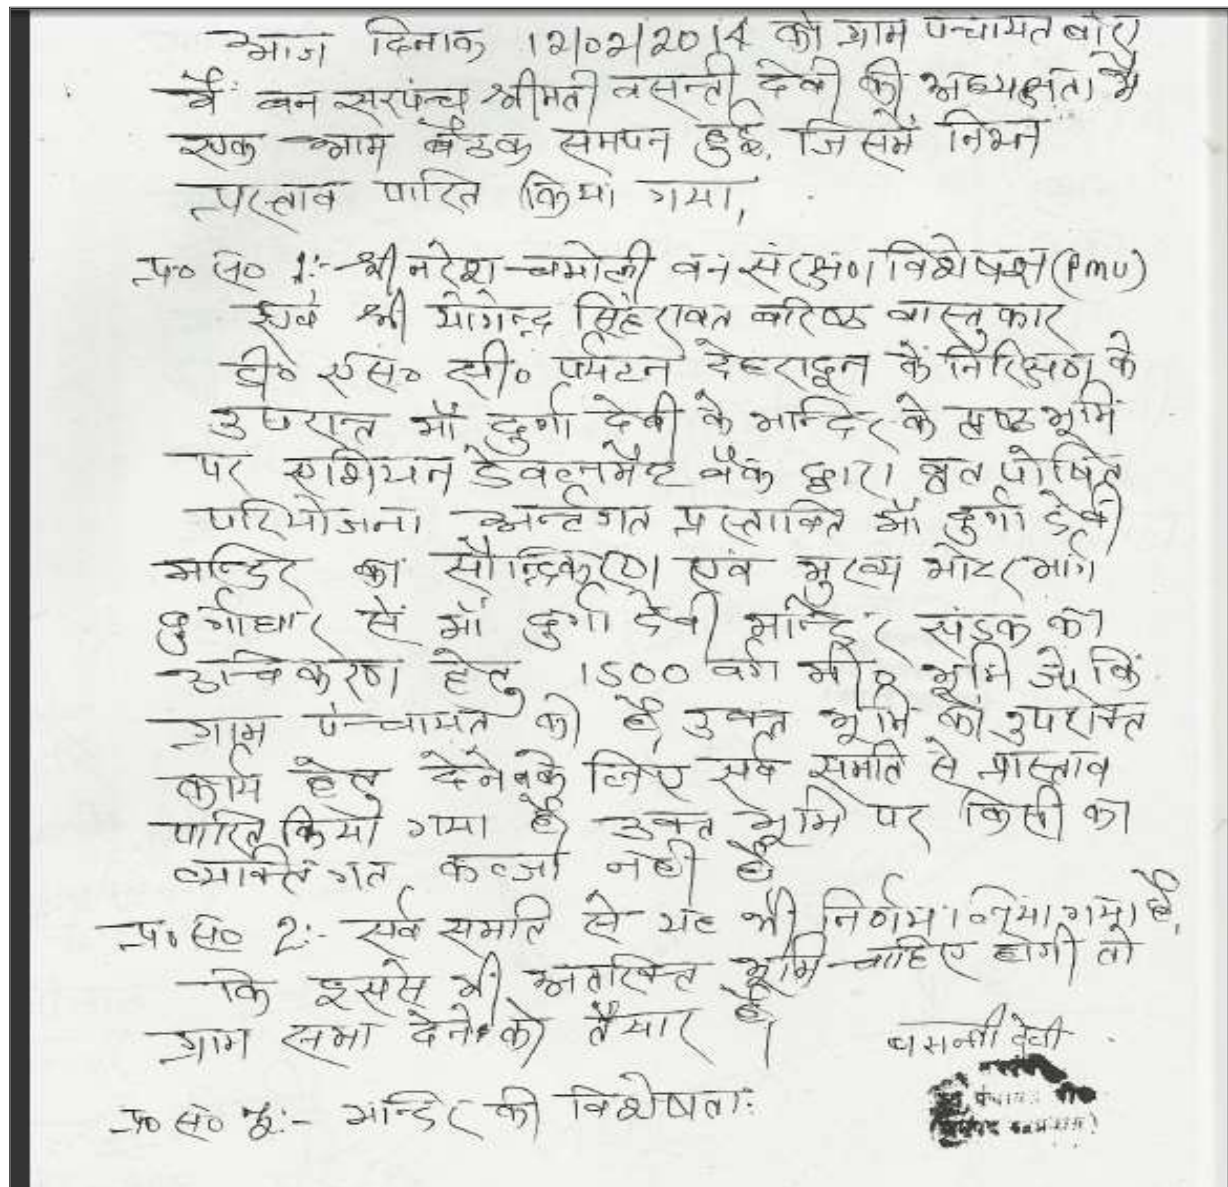 आज दिनाक 12/02/2014 को ग्राम पंन्चायत बोरा
में वन सरपंन्च श्रीमती वसन्ती देवी की अध्यक्षता मै
एक आम बैठक समपन हुई, जिसमें निम्न
प्रस्ताव पारित किया गया,
प्र० स० 1:- श्री नरेश चमोली वन संरक्षण विशेषज्ञ (PMU)
एवं श्री योगेन्द्र सिंह रावत वरिष्ठ वास्तुकार
डी० एस० सी० पर्यटन देहरादून के निरिक्षण के
उपरान्त माँ दुर्गा देवी के मन्दिर के पृष्ठ भूमि
पर एशियन डेवल्पमैन्ट बैंक द्वारा वित पोषित
परियोजना अर्न्तगत प्रस्तावित माँ दुर्गा देवी
मन्दिर का सौन्द्रिकरण एवं मुख्य मोटर मार्ग
दुर्गाधार से माँ दुर्गा देवी मन्दिर संडक का
हेतु 1500 वर्ग मी० भूमि जो कि
ग्राम पंन्चायत की है, उक्त भूमि को उपरोक्त
कार्य हेतु देने के लिए सर्व समति से प्रास्ताव
पारित किया गया है उक्त भूमि पर किसी का
व्यक्तिगत कब्जा नही है
प्र० स० 2:- सर्व समति से यह भी निर्णय लिया गया है,
कि इससे भी अतरिक्त भूमि चाहिए होगी तो
ग्राम सभा देने को तैयार है।
बसन्ती देवी
प्र० स० 3:- मन्दिर की विशेषता: